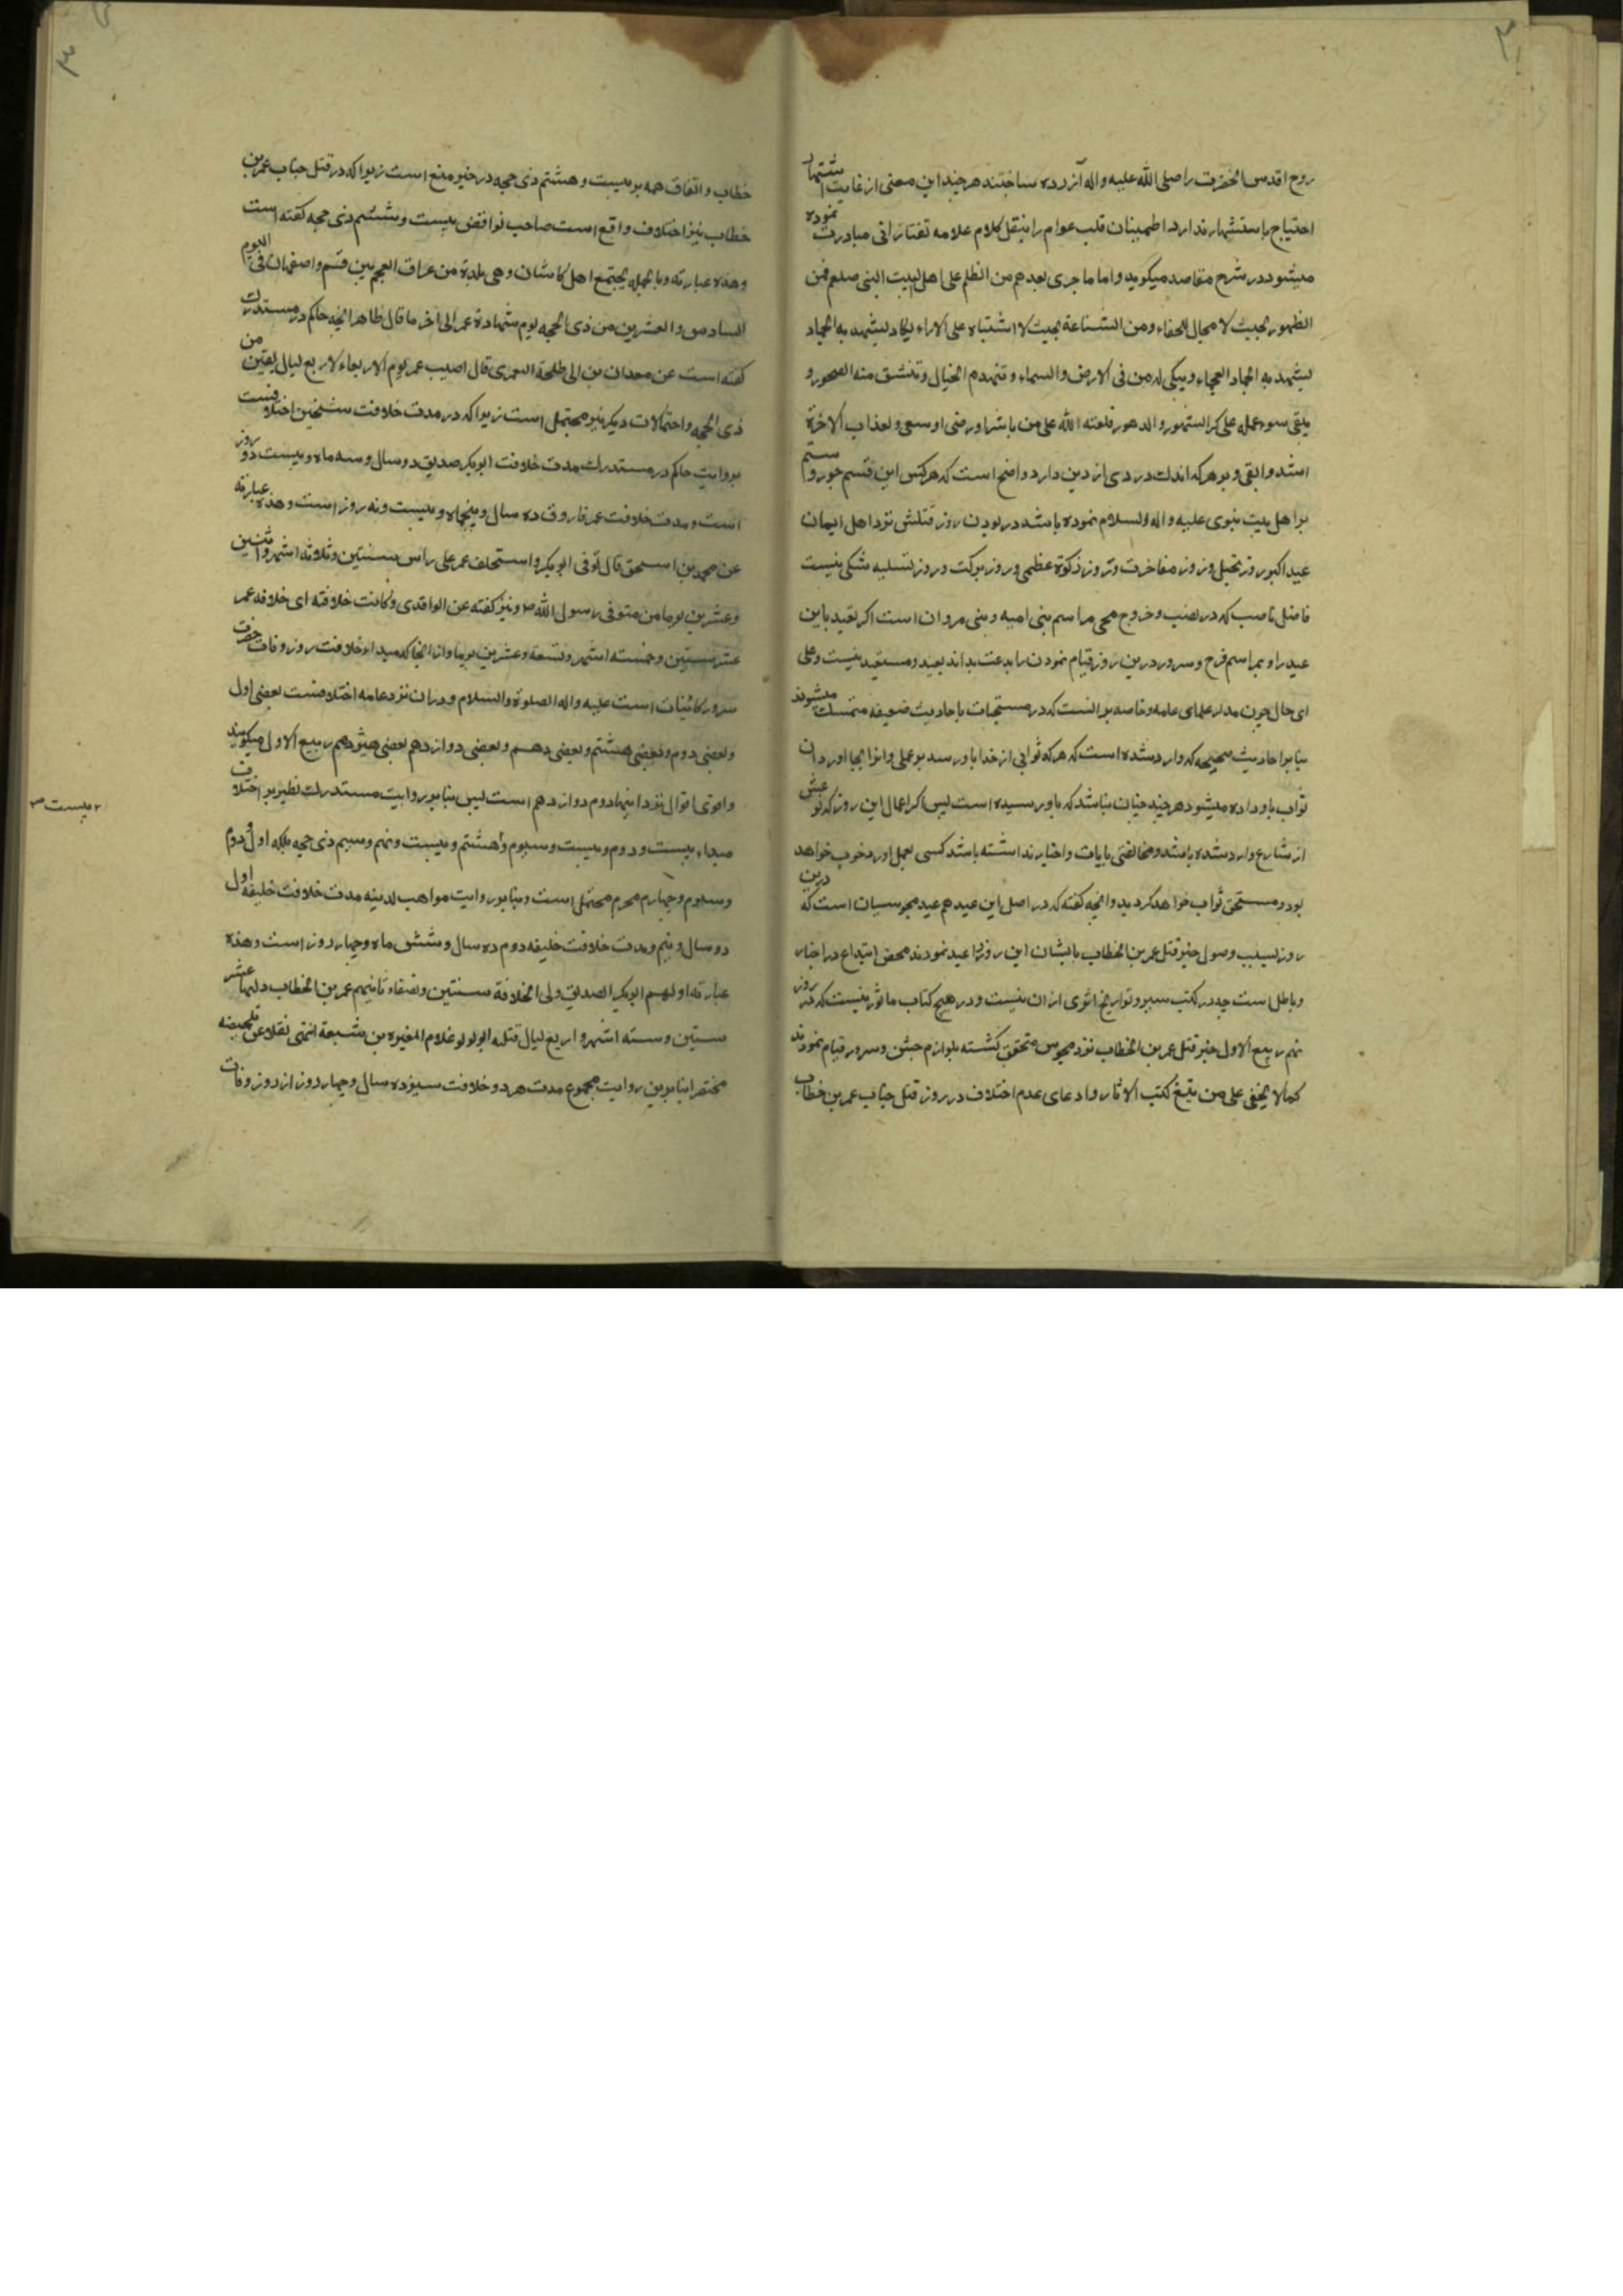 روح اقدس انحضرت را صلی الله علیه واله آزرده ساختند هر چند این معنی از غایت اشتهار
احتیاج باستشهار ندارد اطمینان قلب عوام را بنقل کلام علامه تفتازانی مبادرت نموده
میشود در شرح مقاصد میکوید واما ما جری بعدهم من الظلم علی اهل البیت النبی صلعم فمن
الظهور بحیث لا مجال للخفاء ومن الشناعة بحیث لا اشتباه علی الاراء یکاد لیشهد به الجماد
لیشهد به الجماد العجماء ویبکی له من فی الارض والسماء وتنهدم الجبال وتنشق منه الصخور و
یبقی سوء عمله علی کر الشهور والدهور فلعنة الله علی من باشر او رضی او سعی ولعذاب الاخرة
اشد وابقی و بر هر که اندک دردی از دین دارد واضح است که هر کس این قسم جور و ستم
بر اهل بیت نبوی علیه و اله السلام نموده باشد در بودن روز قتلش نزد اهل ایمان
عید اکبر روز تجلیل وروز مفاخرت وروز زکوة عظمی وروز برکت وروز تسلیه شکی نیست
فاضل ناصب که در نصب و خروج محی مراسم بنی امیه و بنی مروان است اکر تعید باین
عید را و بمراسم فرح و سرور درین روز قیام نمودن را بدعت بداند بعید ومستبعد نیست وعلی
ای حال چون مدار علمای عامه وخاصه برانست که در مستحبات باحادیث ضعیفه متمسک میشوند
بنابر احادیث صحیحه که وارد شده است که هر که ثوابی از خدا باو رسد بر عملی وانرا بجا اورد ان
ثواب باو داده میشود هر چند چنان نباشد که باو رسیده است پس اکر اعمال این روز که
از شارع وارد شده باشد ومخالفتی بایات واخبار نداشته باشد کسی بعمل اورد خوب خواهد
بود ومستحق ثواب خواهد کردید وانچه کفته که در اصل این عید هم عید مجوسیان است که درین
روز بسبب وصول خبر قتل عمر بن الخطاب بایشان این روز را عید نمودند محض ابتداع در اخبار
وباطل است چه در کتب سیر وتواریخ اثری از ان نیست و در هیچ کتاب ماثور نیست که در روز
نهم ربیع الاول خبر قتل عمر بن الخطاب نزد مجوس متحقق کشته بلوازم جشن وسرور قیام نمودند
کما لا یخفی علی من تتبع کتب الاثار وادعای عدم اختلاف در روز قتل جناب عمر بن خطاب
خطاب واتفاق همه بر بیست و هشتم ذی حجه در حیز منع است زیرا که در قتل جناب عمر بن
خطاب نیز اختلاف واقع است صاحب نواقض بیست وششم ذی حجه کفته است
وهذه عبارته وبالجمله یجتمع اهل کاشان وهی بلدة من عراق العجم بین قم واصفهان فی الیوم
السادس والعشرین من ذی الحجه یوم شهادة عمر الی اخر ما قال ظاهرا انچه حاکم در مستدرک
کفته است عن معدان بن ابی طلحة الیعمری قال اصیب عمر یوم الاربعاء لاربع لیال بقین من
ذی الحجه واحتمالات دیکر نیز محتمل است زیرا که در مدت خلافت شیخین اختلافست
بروایت حاکم در مستدرک مدت خلافت ابوبکر صدیق دو سال وسه ماه وبیست دو روز
است ومدت خلافت عمر فاروق ده سال و پنجماه وبیست ونه روز است وهذه عبارته
عن محمد بن اسحق قال توفی ابوبکر واستخلف عمر علی راس سنتین وثلاثة اشهر واثنین
وعشرین یوما من متوفی رسول الله ص ونیز کفته عن الواقدی وکانت خلافته ای خلافه عمر
عشر سنین وخمسته اشهر وتسعة وعشرین یوما واز انجا که مبداء خلافت روز وفات حضرت
سرور کائنات است علیه واله الصلوة والسلام ودران نزد عامه اختلافست بعضی اول
وبعضی دوم وبعضی هشتم وبعضی دهم وبعضی دوازدهم بعضی هیژدهم ربیع الاول میکویند
واقوی اقوال نزد اینها دوم دوازدهم است پس بنابر روایت مستدرک نظیر بر اختلاف
مبداء بیست ودوم وبیست وسیوم وهشتم وبیست ونهم وسیم ذی حجه بلکه اول ودوم
وسیوم وچهارم محرم محتمل است وبنابر روایت مواهب لدینه مدت خلافت خلیفه اول
دو سال ونیم ومدت خلافت خلیفه دوم ده سال وشش ماه وچهار روز است وهذه
عبارته اولهم ابوبکر الصدیق ولی الخلافة سنتین ونصفاء ثانیهم عمر بن الخطاب ولیها عشر
سنین وسته اشهر واربع لیال قتله ابو لولو غلام المغیره بن شعبة انتهی نقلا عن تلخیصه
مختصرا بنابرین روایت مجموع مدت هر دو خلافت سیزده سال وچهار روز از روز وفات